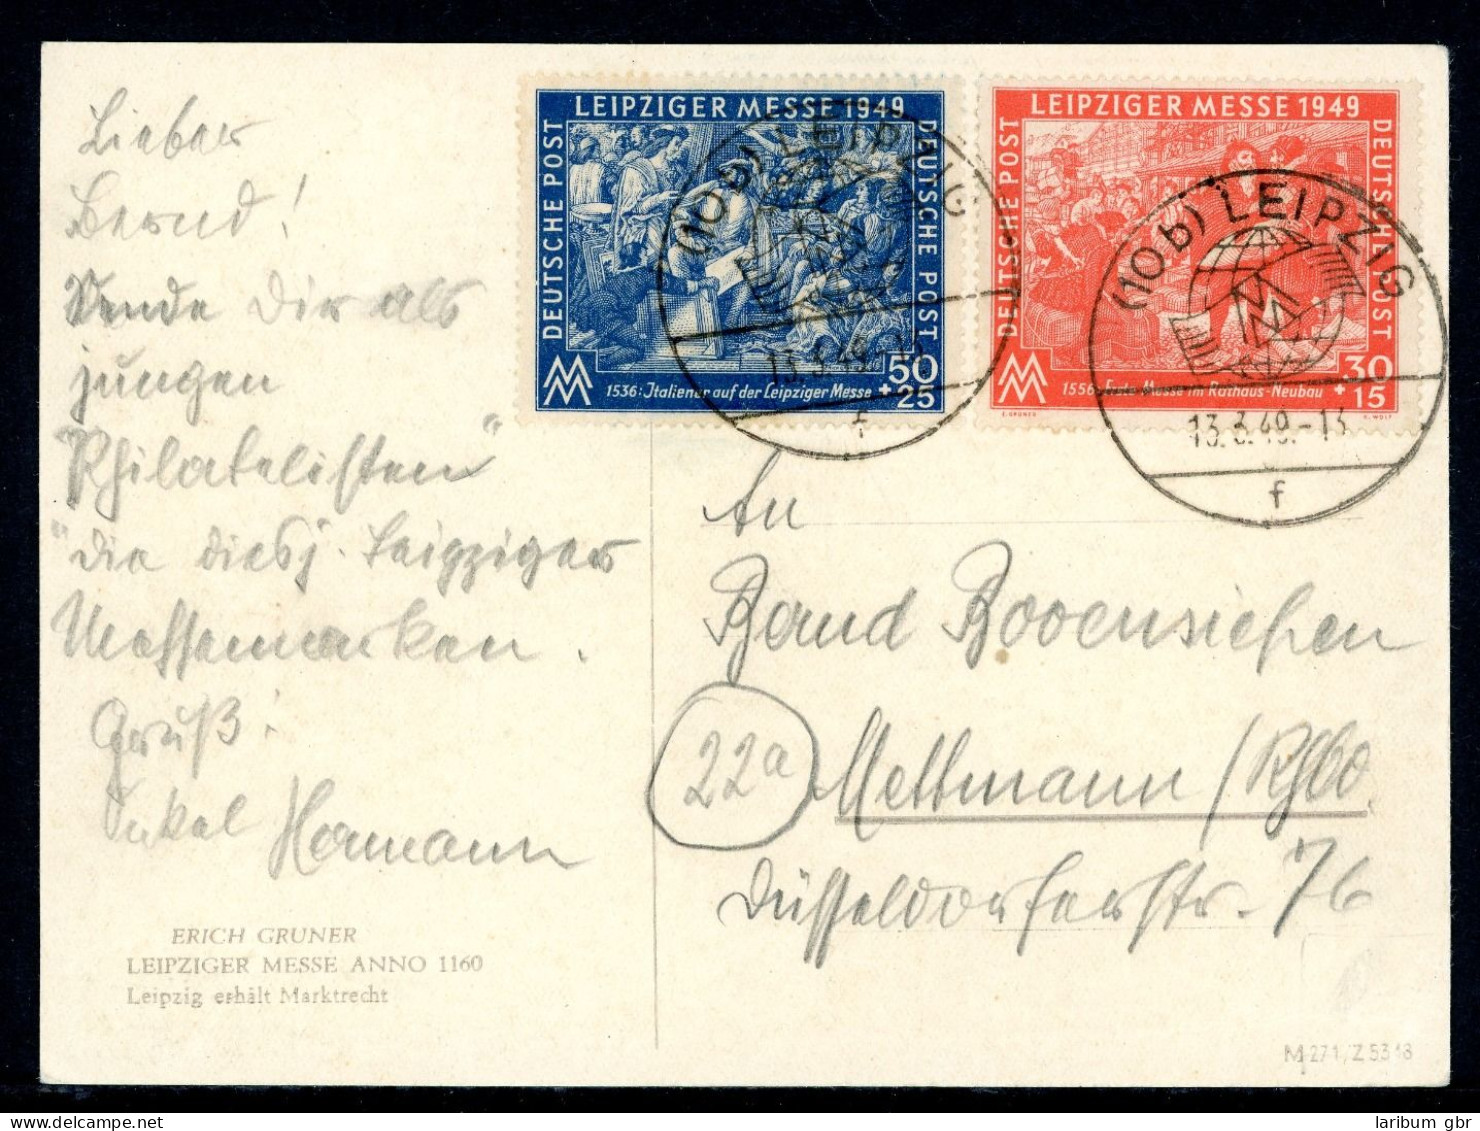 Lieber
Bernd!
Sende Dir als
jungen
"Philatelisten"
die diesj. Leipziger
Messemarken.
Gruß!
Onkel Hermann
ERICH GRUNER
LEIPZIGER MESSE ANNO 1160
Leipzig erhält Marktrecht
LEIPZIGER MESSE 1949
DEUTSCHE POST
DEUTSCHE POST
1536: Italiener auf der Leipziger Messe
50
+25
(10b) LEIPZIG
13.3.49.-13
f
LEIPZIGER MESSE 1949
DEUTSCHE POST
DEUTSCHE POST
1556: Erste Messe im Rathaus-Neubau
30
+15
E. GRUNER
K. WOLF
(10b) LEIPZIG
13.3.49.-13
f
An
Bernd Bovensiepen
22a Mettmann/Rhld.
Düsseldorferstr. 76
M 271/Z 5318
laribum gbr